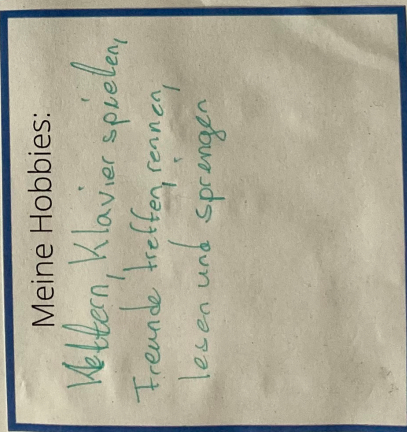 Meine Hobbies:
Klettern, Klavier spielen,
Freunde treffen, rennen,
lesen und springen